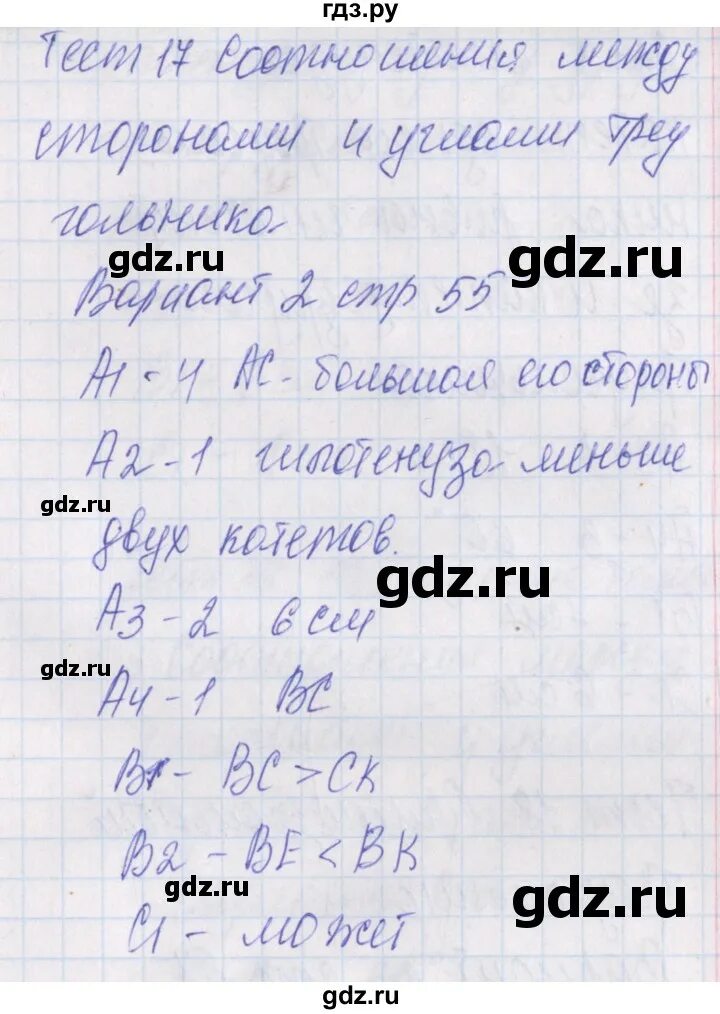 гдз.ру
Тест 17 Соотношения между
сторонами и углами треу
гольника.
gdz.ru
gdz.ru
Вариант 2 стр 55
А1 - 4 АС - большая его стороны
А2 - 1 гипотенуза меньше
gdz.ru
двух катетов.
gdz.ru
А3 - 2 6 см
gdz.ru
А4 - 1 ВС
В1 - ВС > СК
В2 - ВЕ < ВК
gdz.ru
gdz.ru
С1 - может
gdz.ru